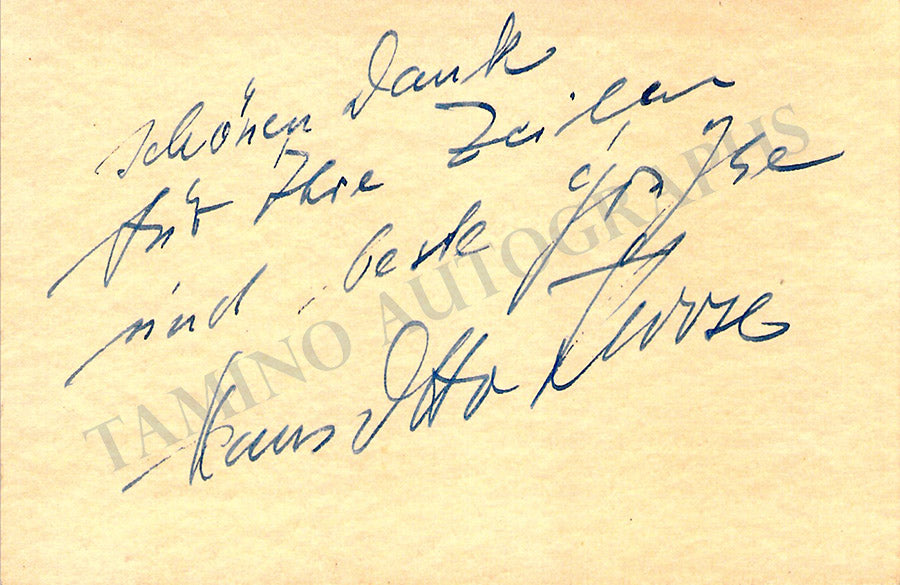 Schönen Dank
für Ihre Zeilen
und beste Grüße
Hans Otto
TAMINO AUTOGRAPHS